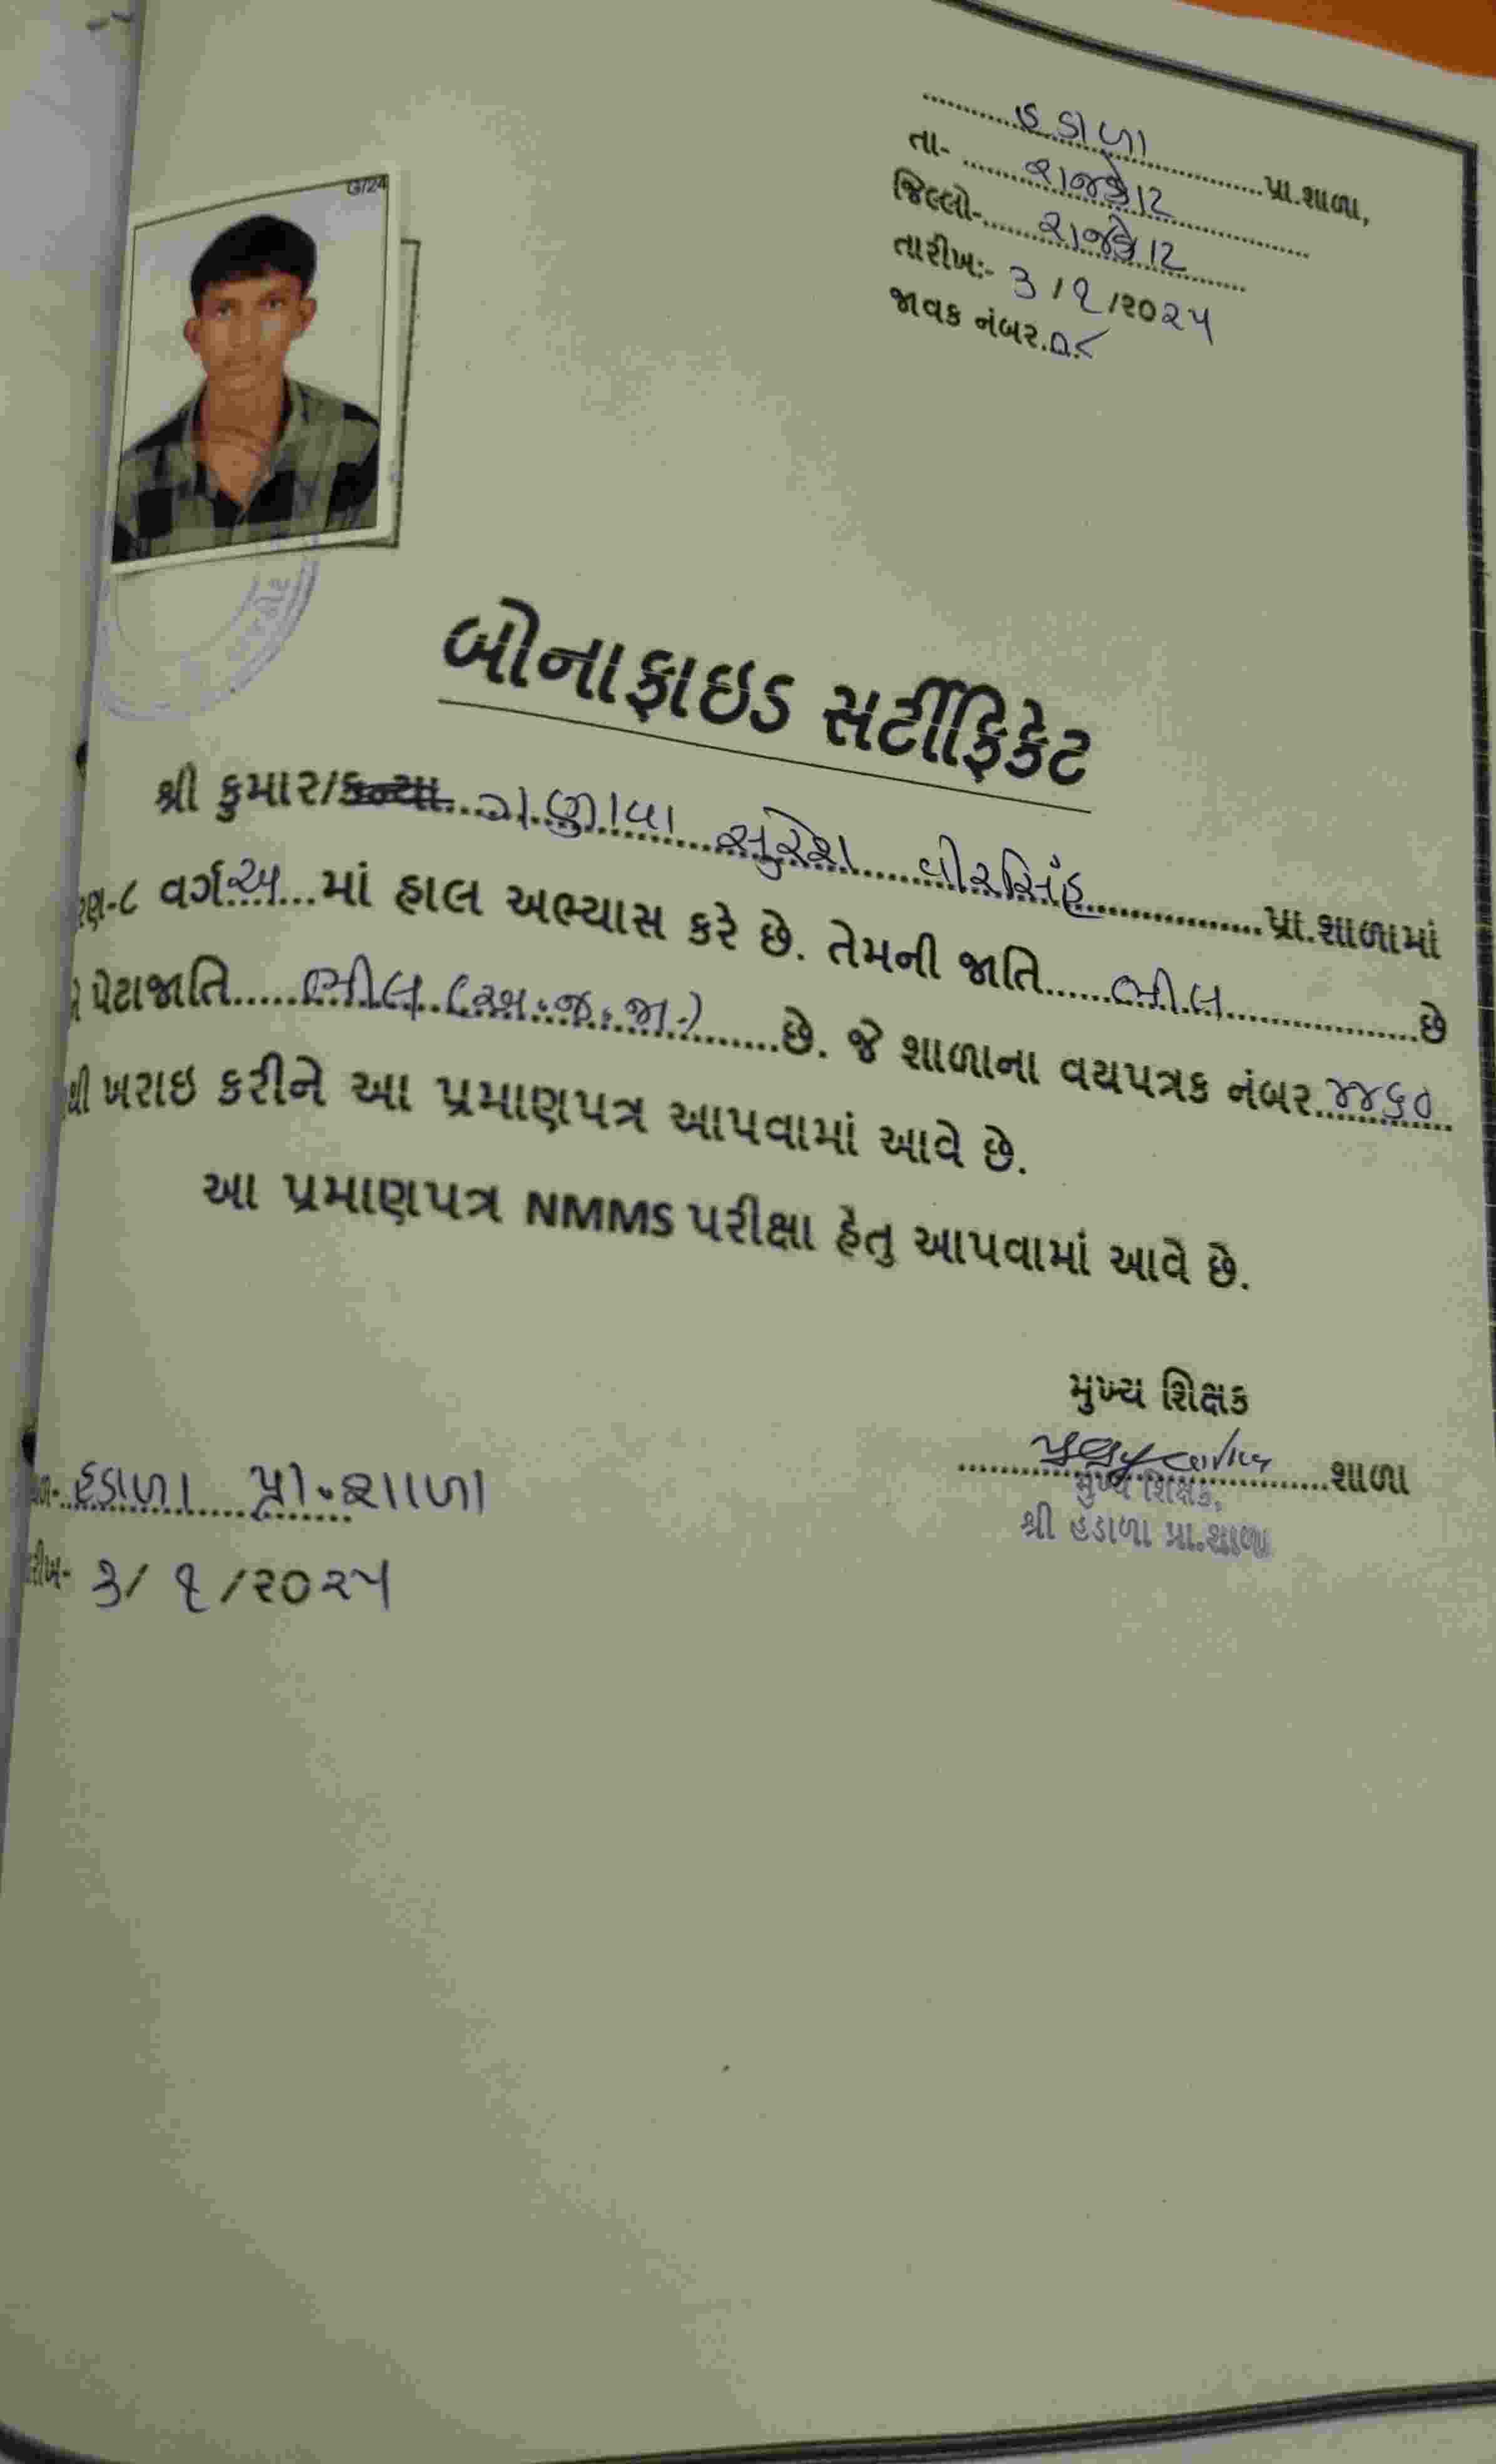 G/24
હડાળા પ્રા.શાળા,
તા- રાજકોટ
જિલ્લો- રાજકોટ
તારીખ:- ૩/૧/૨૦૨૫
જાવક નંબર.
બોનાફાઇડ સર્ટીફિકેટ
શ્રી કુમાર/કન્યા ગણાવા સુરેશ વીરસિંહ પ્રા.શાળામાં
રણ-૮ વર્ગ અ માં હાલ અભ્યાસ કરે છે. તેમની જાતિ ભીલ છે
પેટાજાતિ ભીલ (અ.જ.જા.) છે. જે શાળાના વયપત્રક નંબર ૪૪૬૦
થી ખરાઇ કરીને આ પ્રમાણપત્ર આપવામાં આવે છે.
આ પ્રમાણપત્ર NMMS પરીક્ષા હેતુ આપવામાં આવે છે.
મુખ્ય શિક્ષક
શાળા
મુખ્ય શિક્ષક,
શ્રી હડાળા પ્રા.શાળા
હડાળા પ્રા.શાળા
રીખ- ૩/૧/૨૦૨૫